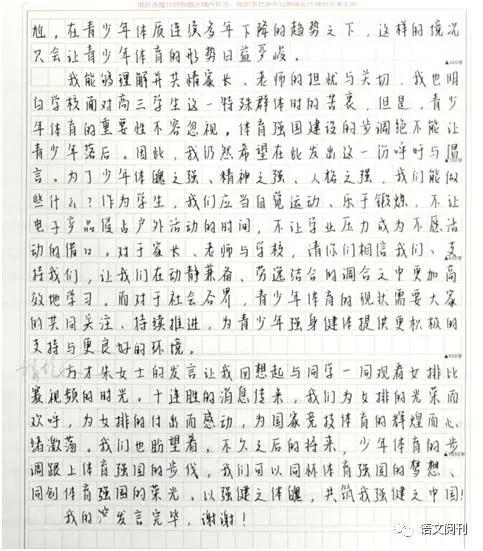 请在各题目的答题区域内作答，超出黑色矩形边框限定区域的答案无效
尬，在青少年体质连续多年下降的趋势之下，这样的境况
只会让青少年体育的形势日益严峻。
我能够理解并共情家长、老师的担忧与关切，我也明
白学校面对高三学生这一特殊群体时的苦衷，但是，青少
年体育的重要性不容忽视，体育强国建设的步调绝不能让
青少年落后。因此，我仍然希望在此发出这一份呼吁与倡
言。为了少年体魄之强、精神之强、人格之强，我们能做
些什么？作为学生，我们应当自觉运动、乐于锻炼，不让
电子产品侵占户外活动的时间，不让学业压力成为不愿活
动的借口。对于家长、老师与学校，请你们相信我们、支
持我们，让我们在动静兼备、劳逸结合的调合之中更加高
效地学习。而对于社会各界，青少年体育的现状需要大家
的共同关注、持续推进，为青少年强身健体提供更积极的
支持与更良好的环境。
方才朱女士的发言让我回想起与同学一同观看女排比
赛视频的时光。十连胜的消息传来，我们为女排的光荣而
欢呼，为女排的付出而感动，为国家竞技体育的辉煌而心
绪激荡。我们也盼望着，不久之后的将来，少年体育的步
调跟上体育强国的步伐，我们可以同怀体育强国的梦想、
同创体育强国的荣光，以强健之体魄，共筑我强健之中国！
我的发言完毕，谢谢！
语文阅刊